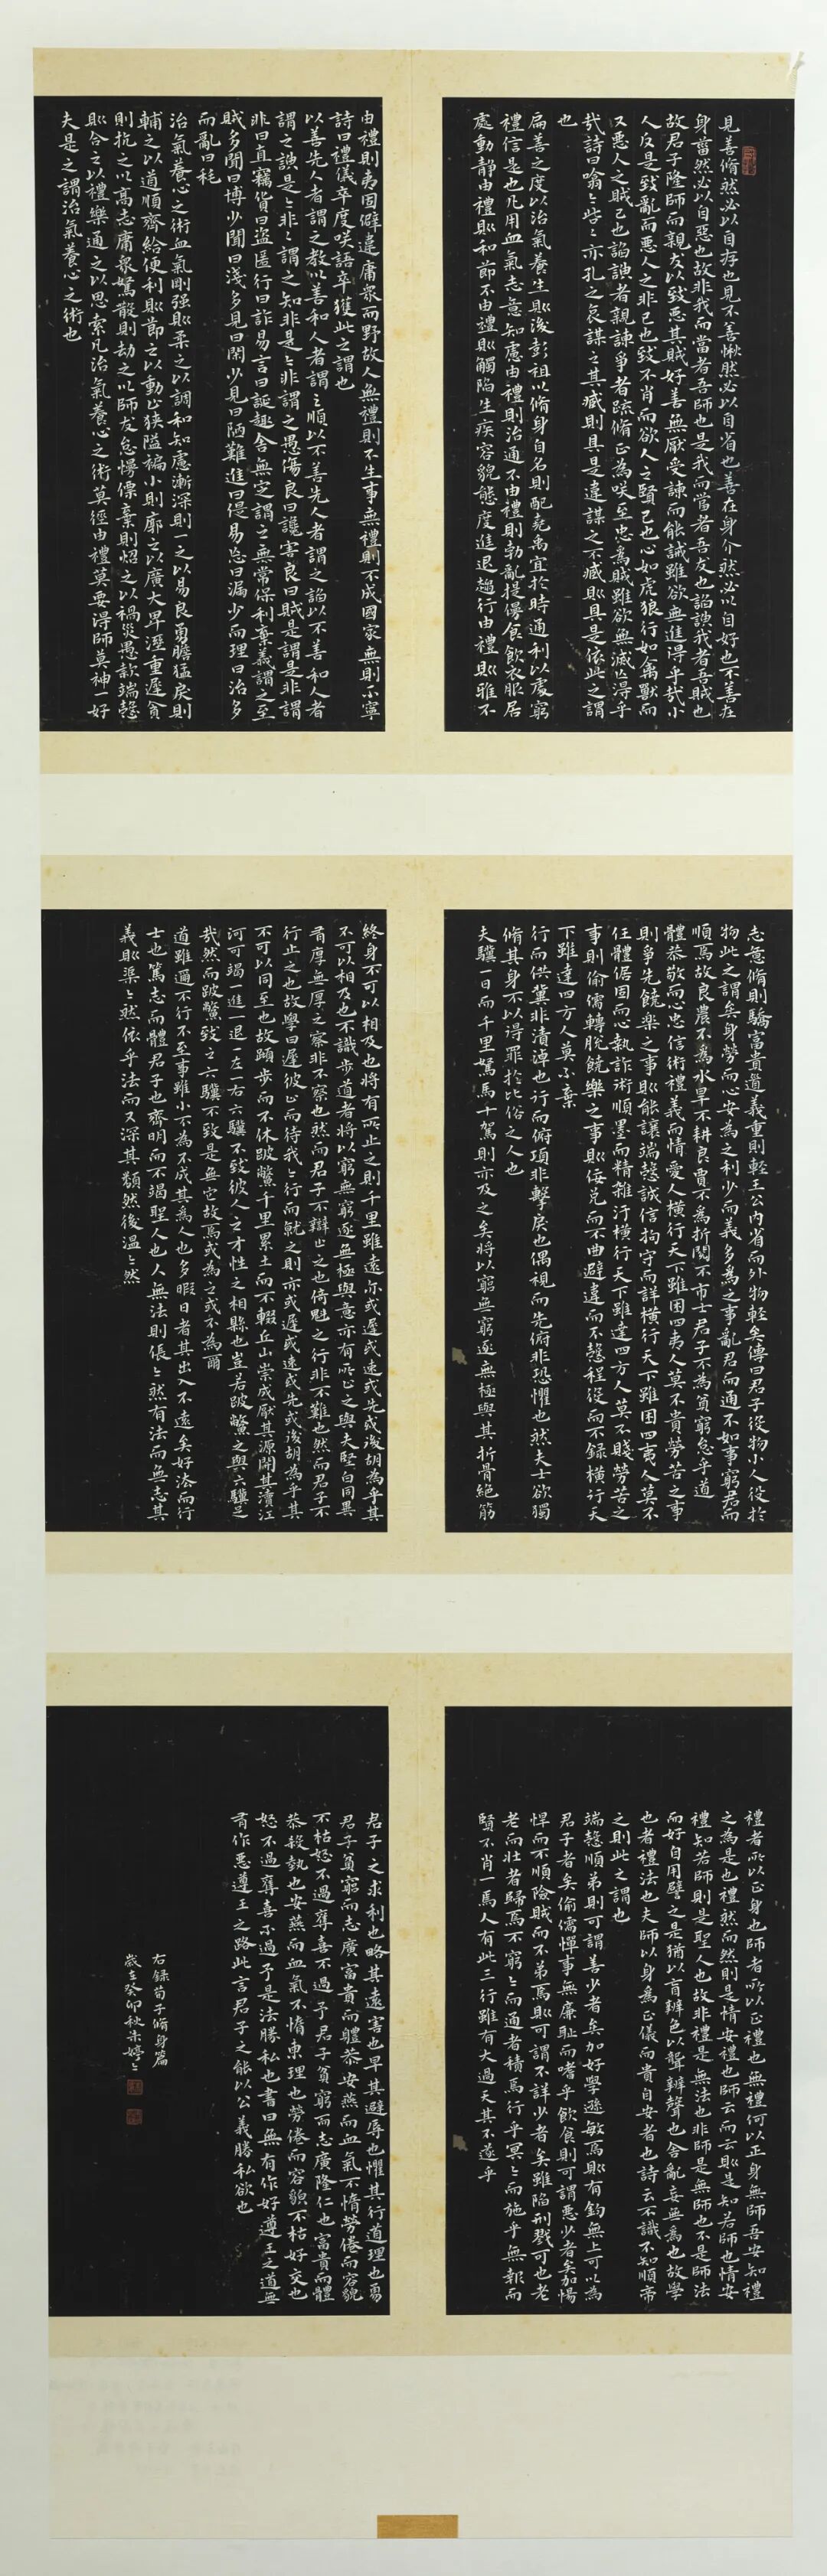 見善脩然必以自存也見不善愀然必以自省也善在身介然必以自好也不善在
身菑然必以自惡也故非我而當者吾師也是我而當者吾友也諂諛我者吾賊也
故君子隆師而親友以致惡其賊好善無厭受諫而能誡雖欲無進得乎哉小
人反是致亂而惡人之非己也致不肖而欲人之賢己也心如虎狼行如禽獸而
又惡人之賊己也諂諛者親諫爭者疏脩正為咲至忠為賊雖欲無滅亡得乎
哉詩曰噏〻呰〻亦孔之哀謀之其臧則具是違謀之不臧則具是依此之謂
也
扁善之度以治氣養生則後彭祖以脩身自名則配堯禹宜於時通利以處窮
禮信是也凡用血氣志意知慮由禮則治通不由禮則勃亂提僈食飲衣服居
處動靜由禮則和節不由禮則觸陷生疾容貌態度進退趨行由禮則雅不
由禮則夷固僻違庸衆而野故人無禮則不生事無禮則不成國家無則不寧
詩曰禮儀卒度咲語卒獲此之謂也
以善先人者謂之教以善和人者謂之順以不善先人者謂之諂以不善和人者
謂之諛是〻非〻謂之知非是〻非謂之愚傷良曰讒害良曰賊是謂是非謂
非曰直竊貨曰盜匿行曰詐易言曰誕趣舍無定謂之無常保利棄義謂之至
賊多聞曰博少聞曰淺多見曰閑少見曰陋難進曰偍易忘曰漏少而理曰治多
而亂曰秏
治氣養心之術血氣剛強則柔之以調和知慮漸深則一之以易良勇膽猛戾則
輔之以道順齊給便利則節之以動止狹隘褊小則廓之以廣大卑溼重遲貪
則抗之以高志庸衆駑散則劫之以師友怠慢僄棄則炤之以禍災愚款端愨
則合之以禮樂通之以思索凡治氣養心之術莫徑由禮莫要得師莫神一好
夫是之謂治氣養心之術也
志意脩則驕富貴道義重則輕王公內省而外物輕矣傳曰君子役物小人役於
物此之謂矣身勞而心安為之利少而義多為之事亂君而通不如事窮君而
順焉故良農不為水旱不耕良賈不為折閱不市士君子不為貧窮怠乎道
體恭敬而心忠信術禮義而情愛人橫行天下雖困四夷人莫不貴勞苦之事
則爭先饒樂之事則能讓端愨誠信拘守而詳橫行天下雖困四夷人莫不
任體倨固而心執詐術順墨而精雜汙橫行天下雖達四方人莫不賤勞苦之
事則偷儒轉脫饒樂之事則佞兌而不曲辟違而不愨程役而不錄橫行天
下雖達四方人莫不棄
行而供冀非漬淖也行而俯項非擊戾也偶視而先俯非恐懼也然夫士欲獨
脩其身不以得罪於比俗之人也
夫驥一日而千里駑馬十駕則亦及之矣將以窮無窮逐無極與其折骨絕筋
終身不可以相及也將有所止之則千里雖遠亦或遲或速或先或後胡為乎其
不可以相及也不識步道者將以窮無窮逐無極與意亦有所止之與夫堅白同異
有厚無厚之察非不察也然而君子不辯止之也倚魁之行非不難也然而君子不
行止之也故學曰遲彼止而待我〻行而就之則亦或遲或速或先或後胡為乎其
不可以同至也故蹞步而不休跛鱉千里累土而不輟丘山崇成厭其源開其瀆江
河可竭一進一退一左一右六驥不致彼人之才性之相縣也豈若跛鱉之與六驥足
哉然而跛鱉致之六驥不致是無它故焉或為之或不為爾
道雖邇不行不至事雖小不為不成其為人也多暇日者其出入不遠矣好法而行
士也篤志而體君子也齊明而不竭聖人也人無法則倀〻然有法而無志其
義則渠〻然依乎法而又深其類然後溫〻然
禮者所以正身也師者所以正禮也無禮何以正身無師吾安知禮
之為是也禮然而然則是情安禮也師云而云則是知若師也情安
禮知若師則是聖人也故非禮是無法也非師是無師也不是師法
而好自用譬之是猶以盲辨色以聾辨聲也舍亂妄無為也故學
也者禮法也夫師以身為正儀而貴自安者也詩云不識不知順帝
之則此之謂也
端愨順弟則可謂善少者矣加好學遜敏焉則有鈞無上可以為
君子者矣偷儒憚事無廉恥而嗜乎飲食則可謂惡少者矣加愓
悍而不順險賊而不弟焉則可謂不詳少者矣雖陷刑戮可也老
老而壯者歸焉不窮〻而通者積焉行乎冥〻而施乎無報而
賢不肖一焉人有此三行雖有大過天其不遂乎
君子之求利也略其遠害也早其避辱也懼其行道理也勇
君子貧窮而志廣富貴而體恭安燕而血氣不惰勞倦而容貌
不枯怒不過奪喜不過予君子貧窮而志廣隆仁也富貴而體
恭殺埶也安燕而血氣不惰柬理也勞倦而容貌不枯好交也
怒不過奪喜不過予是法勝私也書曰無有作好遵王之道無
有作惡遵王之路此言君子之能以公義勝私欲也
右錄荀子脩身篇
歲在癸卯秋朱婷〻